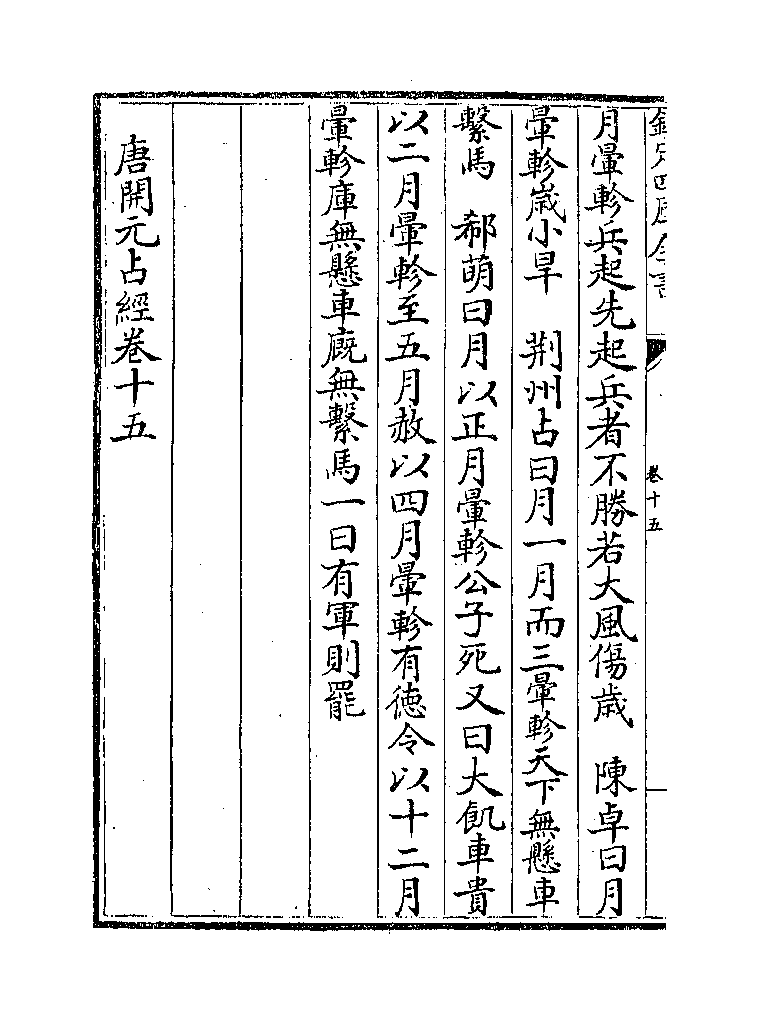 欽定四庫全書
卷十五
月暈軫兵起先起兵者不勝若大風傷歲　陳卓曰月
暈軫歲小旱　荆州占曰月一月而三暈軫天下無懸車
繫馬　郗萌曰月以正月暈軫公子死又曰大飢車貴
以二月暈軫至五月赦以四月暈軫有德令以十二月
暈軫庫無懸車廐無繫馬一曰有軍則罷
唐開元占經卷十五